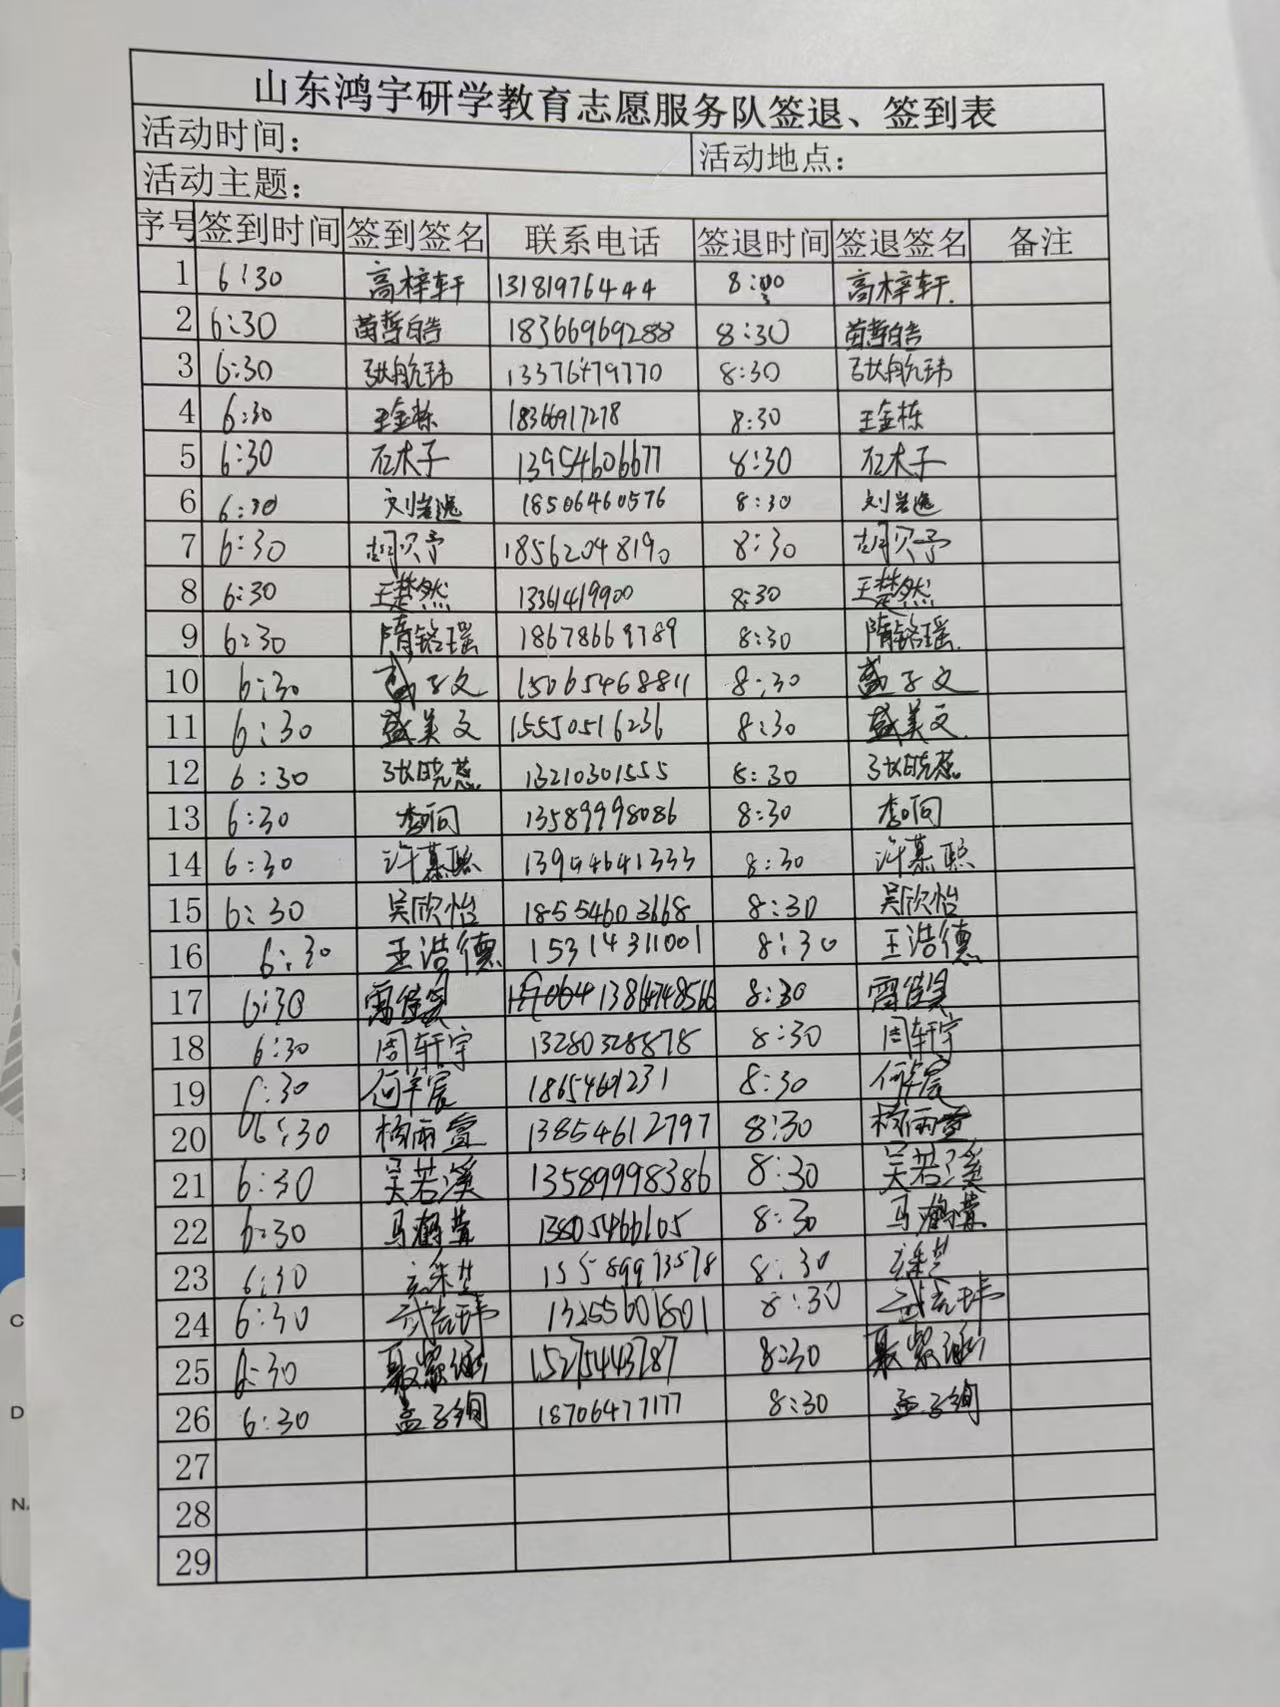 山东鸿宇研学教育志愿服务队签退、签到表
活动时间： 活动地点：
活动主题：
序号 签到时间 签到签名 联系电话 签退时间 签退签名 备注
1 6:30 高梓轩 13181976444 8:00 高梓轩
2 6:30 苗哲皓 18366969288 8:30 苗哲皓
3 6:30 张航玮 13376479770 8:30 张航玮
4 6:30 王金栋 18366917278 8:30 王金栋
5 6:30 石木子 13954606677 8:30 石木子
6 6:30 18506460576 8:30
7 6:30 胡贝予 18562048190 8:30 胡贝予
8 6:30 王楚然 13361419900 8:30 王楚然
9 6:30 隋铭瑶 18678669789 8:30 隋铭瑶
10 6:30 盛子文 15065468811 8:30 盛子文
11 6:30 盛美文 15550516236 8:30 盛美文
12 6:30 张晓蕊 13210301555 8:30 张晓蕊
13 6:30 13589998086 8:30
14 6:30 许慕熙 8:30 许慕熙
15 6:30 吴欣怡 18554603668 8:30 吴欣怡
16 6:30 王浩德 15314311001 8:30 王浩德
17 6:30 13864748566 8:30
18 6:30 周轩宇 13280328878 8:30 周轩宇
19 6:30 8:30
20 6:30 杨雨萱 13854612797 8:30 杨雨萱
21 6:30 吴若溪 13589998386 8:30 吴若溪
22 6:30 13805466105 8:30
23 6:30 15589973578 8:30
24 6:30 13255601801 8:30
25 6:30 聂紫涵 15275443787 8:30 聂紫涵
26 6:30 孟子绚 18706477177 8:30 孟子绚
27
28
29